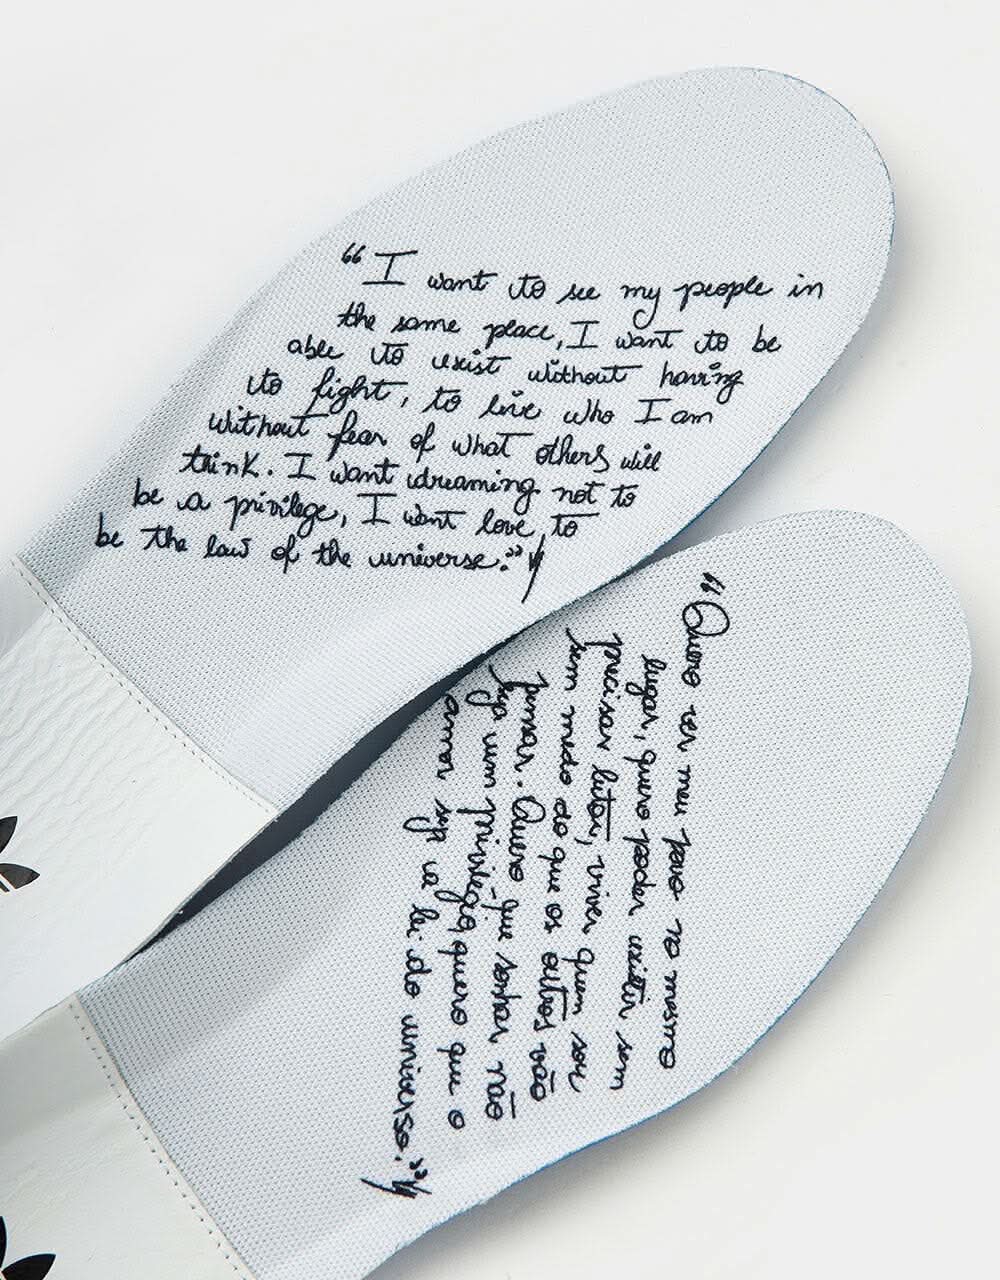 “I want to see my people in
the same place, I want to be
able to exist without having
to fight, to live who I am
without fear of what others will
think. I want dreaming not to
be a privilege, I want love to
be the law of the universe.”
“Quero ver meu povo no mesmo
lugar, quero poder existir sem
precisar lutar, viver quem sou
sem medo do que os outros vão
pensar. Quero que sonhar não
seja um privilégio, quero que o
amor seja a lei do universo.”